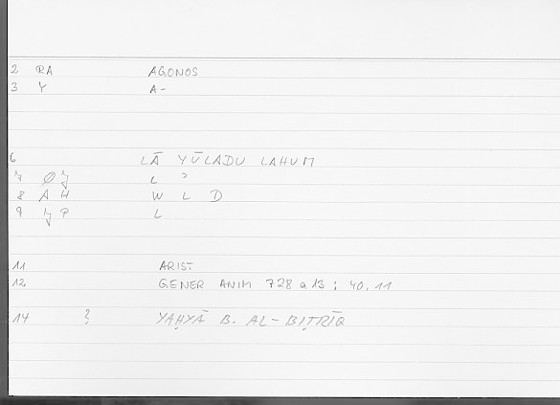 2 RA AGONOS
3 Y A-
6 LĀ YŪLADU LAHUM
L
8 A H W L D
9 L
11 ARIST
12 GENER ANIM 728 a 13 ; 40,11
14 ? YAḤYĀ B. AL-BIṬRĪQ